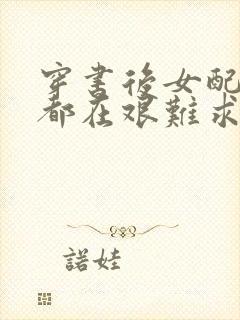 穿書後女配
都在艱難求
諾娃